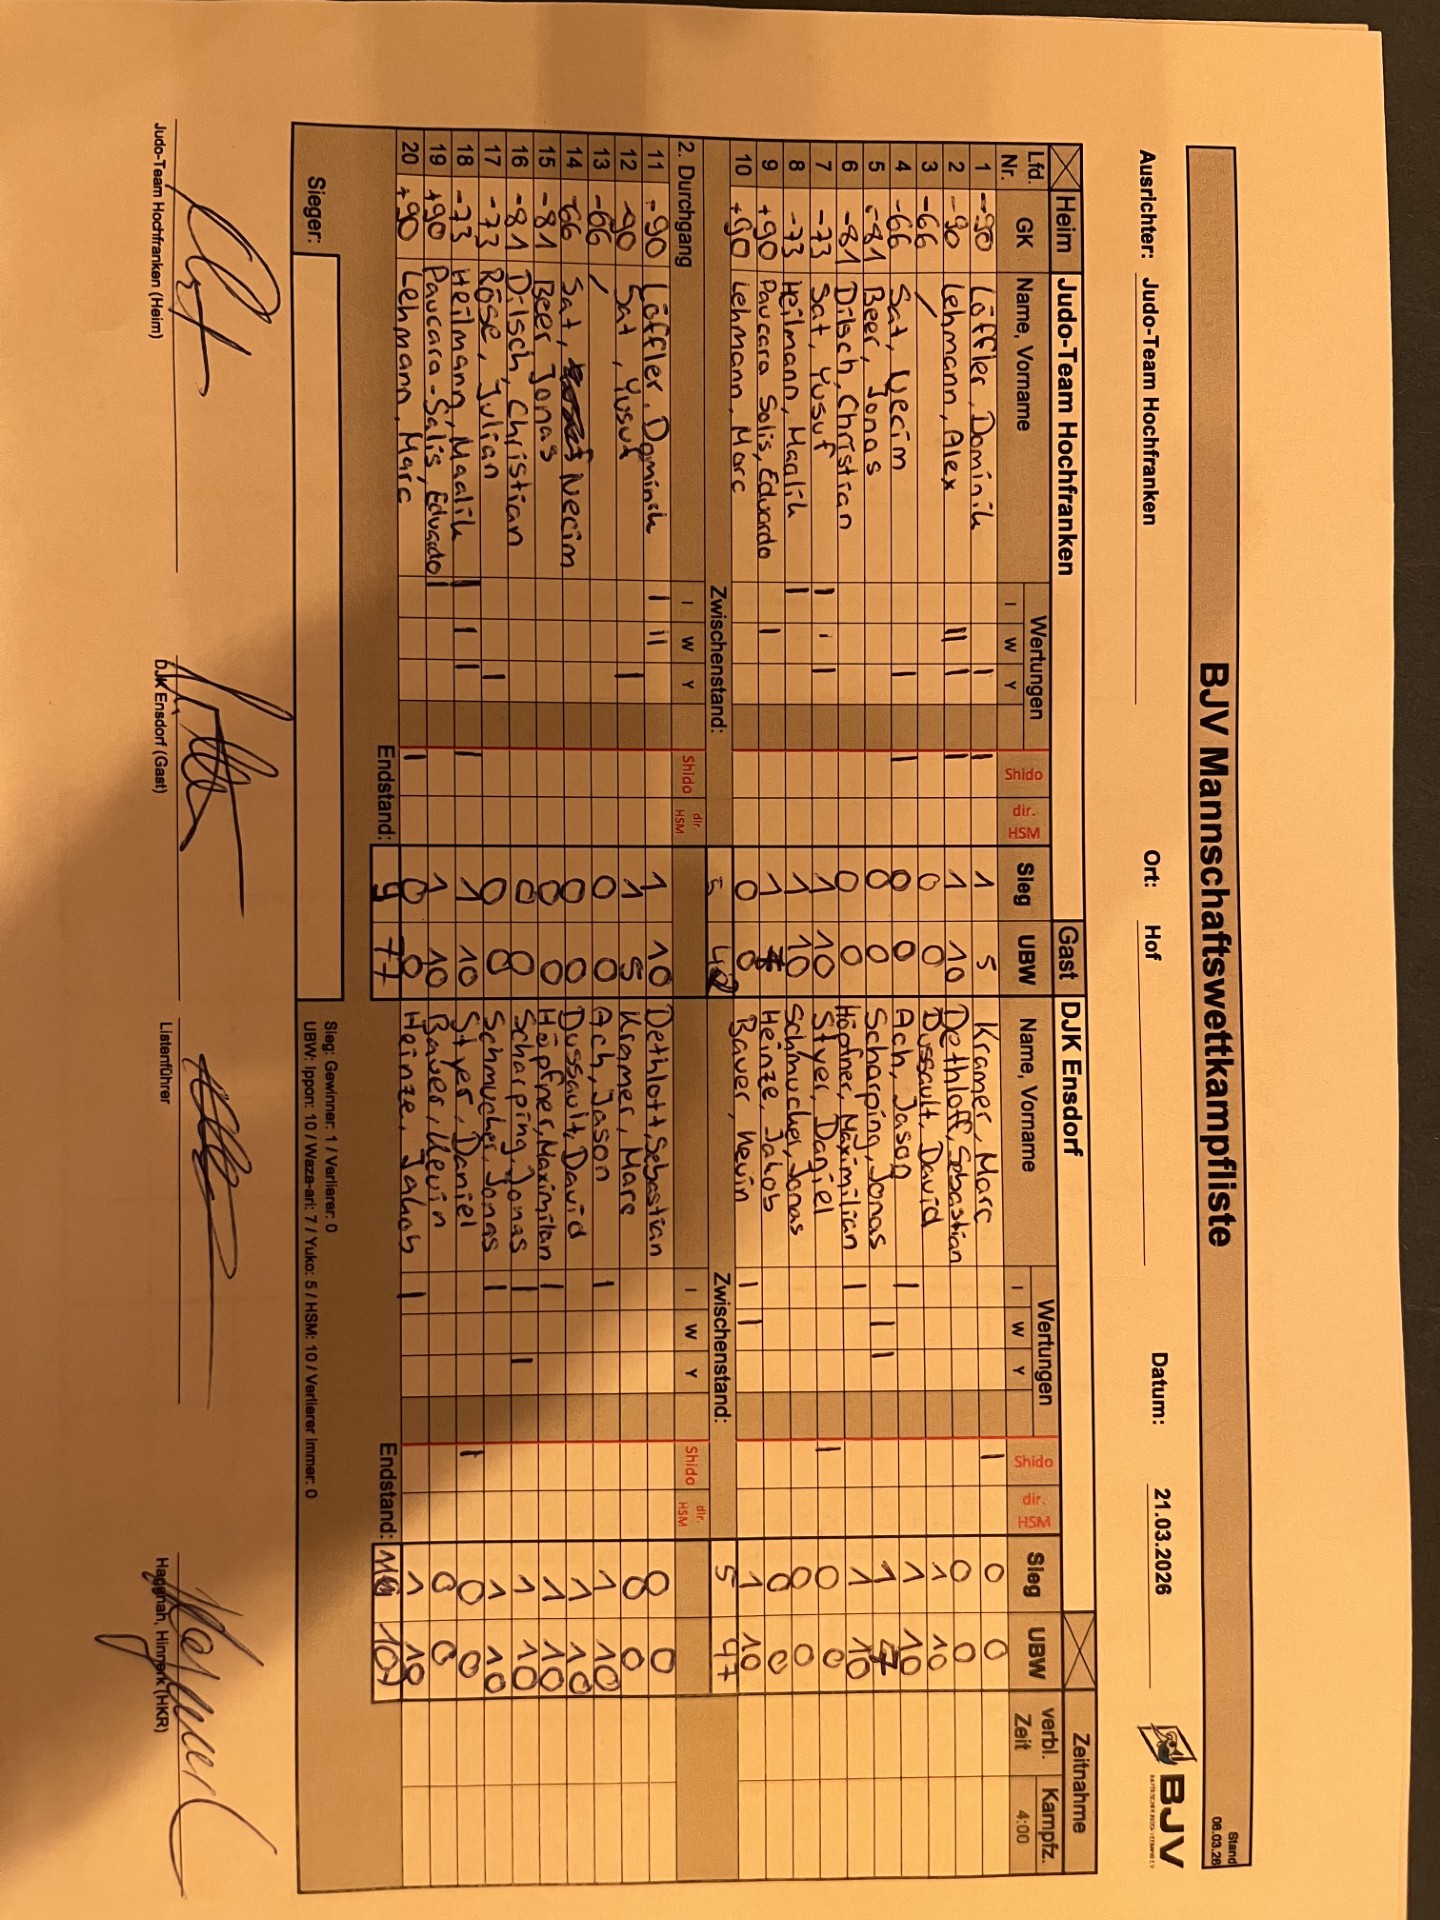 BJV Mannschaftswettkampfliste
Stand 08.03.26
Ausrichter: Judo-Team Hochfranken Ort: Hof Datum: 21.03.2026 BJV
Heim Judo-Team Hochfranken Gast DJK Ensdorf Zeitnahme
Lfd. Nr. GK Name, Vorname Wertungen I W Y Shido dir. HSM Sieg UBW Name, Vorname Wertungen I W Y Shido dir. HSM Sieg UBW verbl. Zeit Kampfz. 4:00
1 -90 Löffler, Dominik | | 1 5 Kramer, Marc | 0 0
2 -90 Lehmann, Alex || | | 1 10 Dethloff, Sebastian 0 0
3 -66 / 0 0 Dussault, David 1 10
4 -66 Sat, Necim | | 0 0 Ach, Jason | 1 10
5 -81 Beer, Jonas 0 0 Scharping, Jonas | | 1 7
6 -81 Dilsch, Christian 0 0 Höpfner, Maximilian | 1 10
7 -73 Sat, Yusuf | ' | 1 10 Styer, Daniel | 0 0
8 -73 Heilmann, Maalik | 1 10 Schmucker, Jonas 0 0
9 +90 Paucara Solis, Eduardo | 1 7 Heinze, Jakob 0 0
10 +90 Lehmann, Marc 0 0 Bauer, Kevin | | 1 10
Zwischenstand: 5 42 Zwischenstand: 5 47
2. Durchgang I W Y Shido dir. HSM I W Y Shido dir. HSM
11 -90 Löffler, Dominik | || 1 10 Dethloff, Sebastian 0 0
12 -90 Sat, Yusuf | 1 5 Kramer, Marc 0 0
13 -66 / 0 0 Ach, Jason | 1 10
14 -66 Sat, Necim 0 0 Dussault, David 1 10
15 -81 Beer, Jonas 0 0 Höpfner, Maximilan | 1 10
16 -81 Dilsch, Christian 0 0 Scharping, Jonas | | 1 10
17 -73 Röse, Julian | 0 0 Schmucker, Jonas | 1 10
18 -73 Heilmann, Maalik | | | | 1 10 Styer, Daniel | 0 0
19 +90 Paucara-Salis, Eduardo | 1 10 Bauer, Kevin 0 0
20 +90 Lehmann, Marc | 0 0 Heinze, Jakob | 1 10
Endstand: 9 77 Endstand: 107
Sieger:
Sieg: Gewinner: 1 / Verlierer: 0
UBW: Ippon: 10 / Waza-ari: 7 / Yuko: 5 / HSM: 10 / Verlierer immer: 0
Judo-Team Hochfranken (Heim) DJK Ensdorf (Gast) Listenführer Hagenah, Hinnerk (HKR)